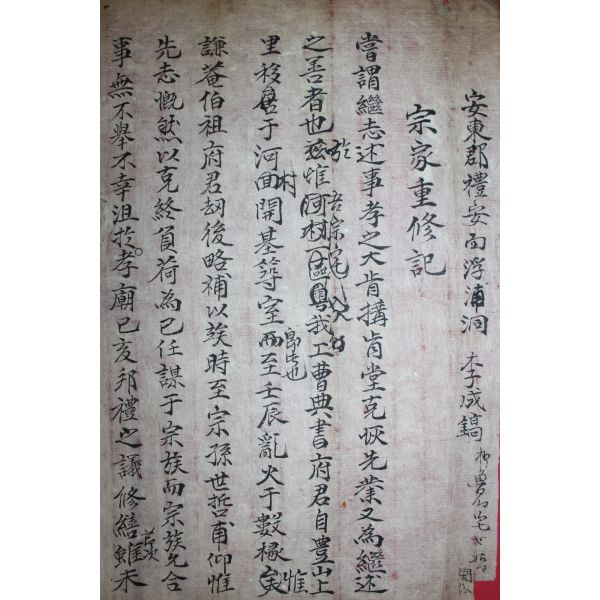 安東郡禮安面浮浦洞 李成鎬
宗家重修記
嘗謂繼志述事孝之大肯搆肯堂克恢先業又為繼述
之善者也玆惟河村一區粤我工曹典書府君自豊山上
於 吾宗宅
里移居于河回開基等室而至壬辰亂火于數椽
村 卽
謙菴伯祖府君刼後略補以竢時至宗孫世哲甫仰惟
先志慨然以克終負荷為己任謀于宗族而宗族允合
事無不擧不幸沮於孝廟己亥邦禮之議修繕雖未